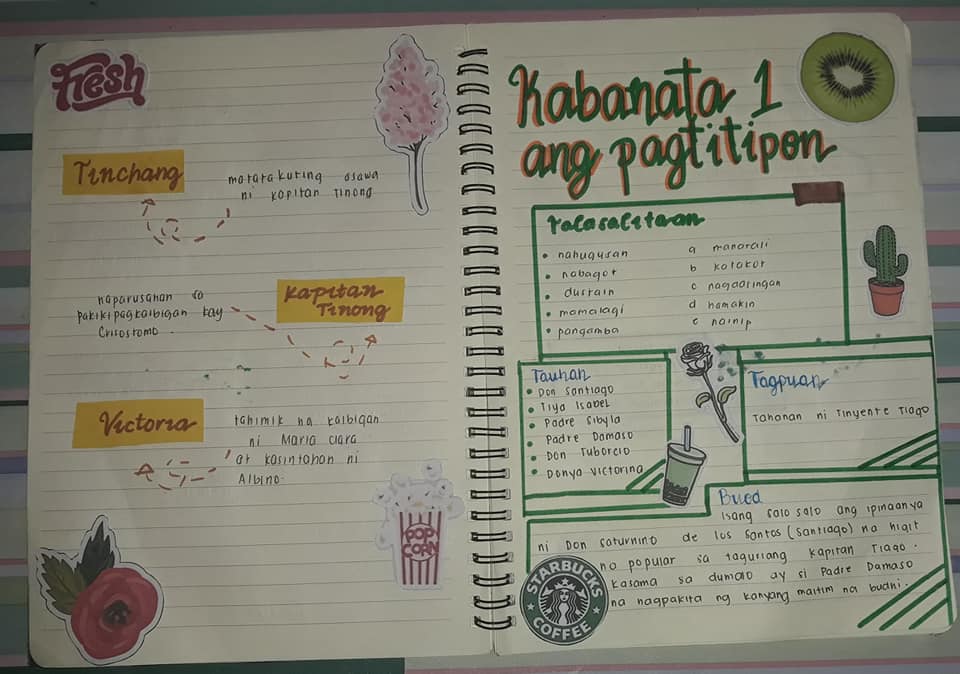 Fresh
Tinchang
matatakuting asawa
ni kapitan Tinong
naparusahan sa
pakikipagkaibigan kay
Crisostomo.
Kapitan
Tinong
Victoria
tahimik na kaibigan
ni Maria Clara
at kasintahan ni
Albino.
POP
CORN
Kabanata 1
ang pagtitipon
Talasalitaan
• nahugusan
• nabagot
• dustain
• mamalagi
• pangamba
a manatali
b katakot
c nagdaringan
d hamakin
e nainip
Tauhan
• Don Santiago
• Tiya Isabel
• Padre Sibyla
• Padre Damaso
• Don Tuborcio
• Donya Victorina
Tagpuan
Tahanan ni Tinyente Tiago
Buod
Isang salo salo ang ipinaanya
ni Don Saturnino de los Santos (Santiago) na higit
na popular sa taguriang kapitan Tiago.
Kasama sa dumalo ay si Padre Damaso
na nagpakita ng kanyang maitim na budhi.
STARBUCKS
COFFEE